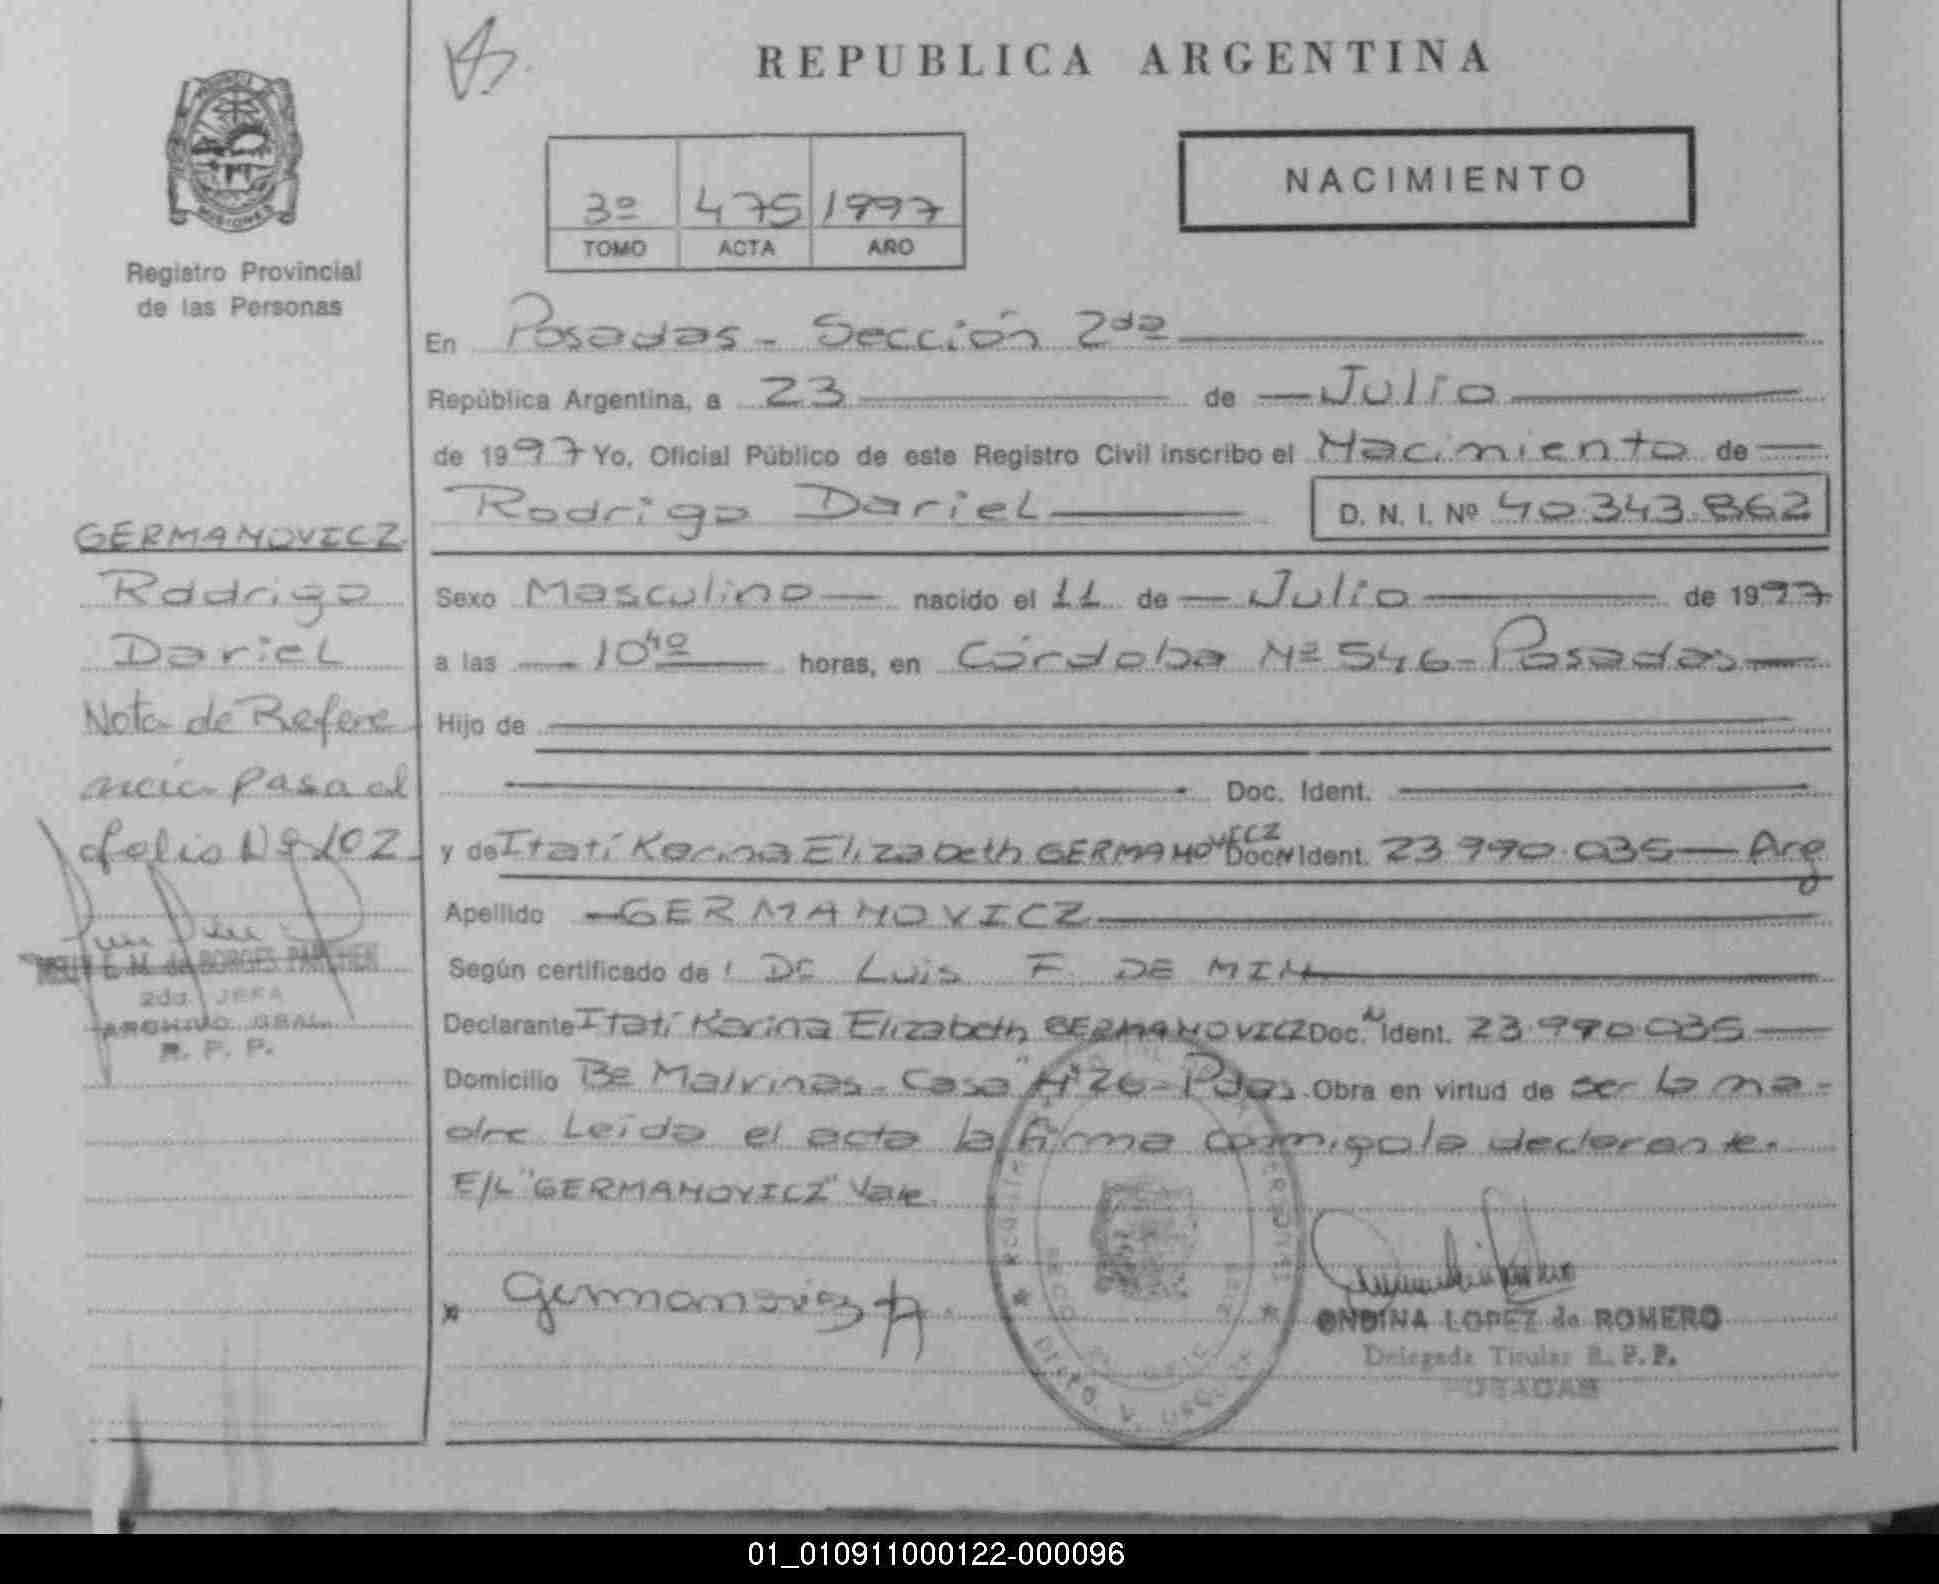 REPUBLICA ARGENTINA
NACIMIENTO
3º 475 1997
TOMO ACTA AÑO
MISIONES
Registro Provincial
de las Personas
En Posadas - Sección 2da
República Argentina, a 23 de Julio
de 1997 Yo, Oficial Público de este Registro Civil inscribo el Nacimiento de
Rodrigo Dariel D. N. I. Nº 40.343.862
GERMANOVICZ
Rodrigo
Dariel
Nota de Refere
ncia pasa al
folio Nº 102
E. M. de BORGES
2da. JEFA
ARCHIVO GRAL.
R. P. P.
Sexo Masculino nacido el 11 de Julio de 1997
a las 10 40 horas, en Córdoba Nº 546 - Posadas
Hijo de
Doc. Ident.
y de Itatí Karina Elizabeth GERMANOVICZ Doc. Ident. 23.990.035 Arg
Apellido GERMANOVICZ
Según certificado de: Dr Luis F. DE MIN
Declarante Itatí Karina Elizabeth GERMANOVICZ Doc. Ident. 23.990.035
Domicilio Bº Malvinas - Casa Nº 26 - Pdas. Obra en virtud de ser la ma-
dre Leída el acta la firma conmigo la declarante.
E/L "GERMANOVICZ" Vale
Germanovicz
ONDINA LOPEZ de ROMERO
Delegada Titular R. P. P.
POSADAS
01_010911000122-000096